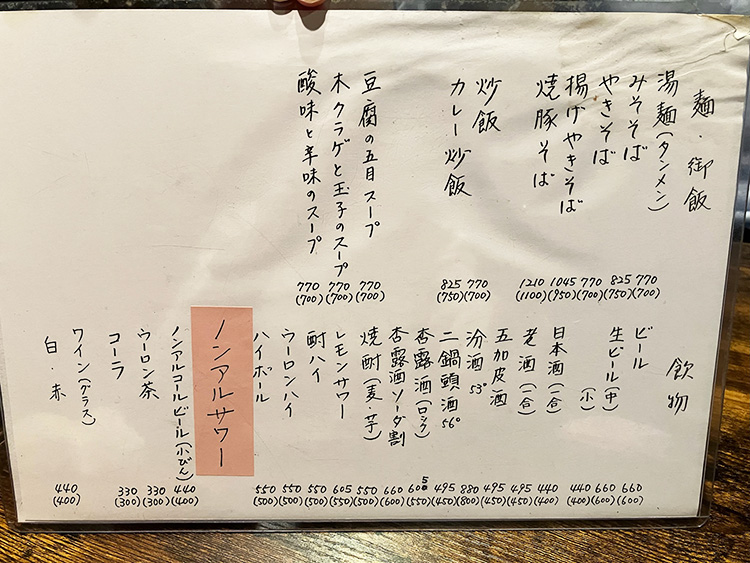 麺・御飯
湯麺(タンメン) 770 (700)
みそそば 825 (750)
やきそば 770 (700)
揚げやきそば 1045 (950)
焼豚そば 1210 (1100)
炒飯 770 (700)
カレー炒飯 825 (750)
豆腐の五目スープ 770 (700)
木クラゲと玉子のスープ 770 (700)
酸味と辛味のスープ 770 (700)
飲物
ビール 660 (600)
生ビール(中) 660 (600)
(小) 440 (400)
日本酒(一合) 440 (400)
老酒(一合) 495 (450)
五加皮酒 495 (450)
汾酒 53° 880 (800)
二鍋頭酒 56° 495 (450)
杏露酒(ロック) 605 (550)
杏露酒ソーダ割 660 (600)
焼酎(麦・芋) 550 (500)
レモンサワー 605 (550)
酎ハイ 550 (500)
ウーロンハイ 550 (500)
ハイボール 550 (500)
ノンアルサワー
ノンアルコールビール(小びん) 440 (400)
ウーロン茶 330 (300)
コーラ 330 (300)
ワイン(グラス)
白・赤 440 (400)